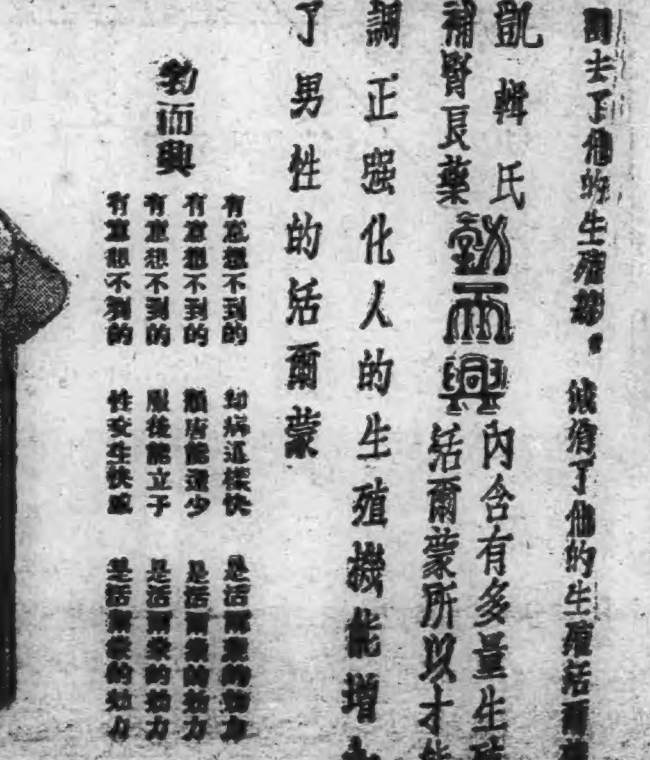 去了他的生殖
了他的生殖活爾
凱輯氏
補腎良藥
勃而興
內含有多量生殖
活爾蒙所以才能
調正强化人的生殖機能增加
了男性的活爾蒙
勃而興
有意想不到的 却病這樣快 是活爾蒙的効力
有意想不到的 顏唐能還少 是活爾蒙的効力
有意想不到的 服後能立子 是活爾蒙的効力
有意想不到的 性交生快感 是活爾蒙的効力